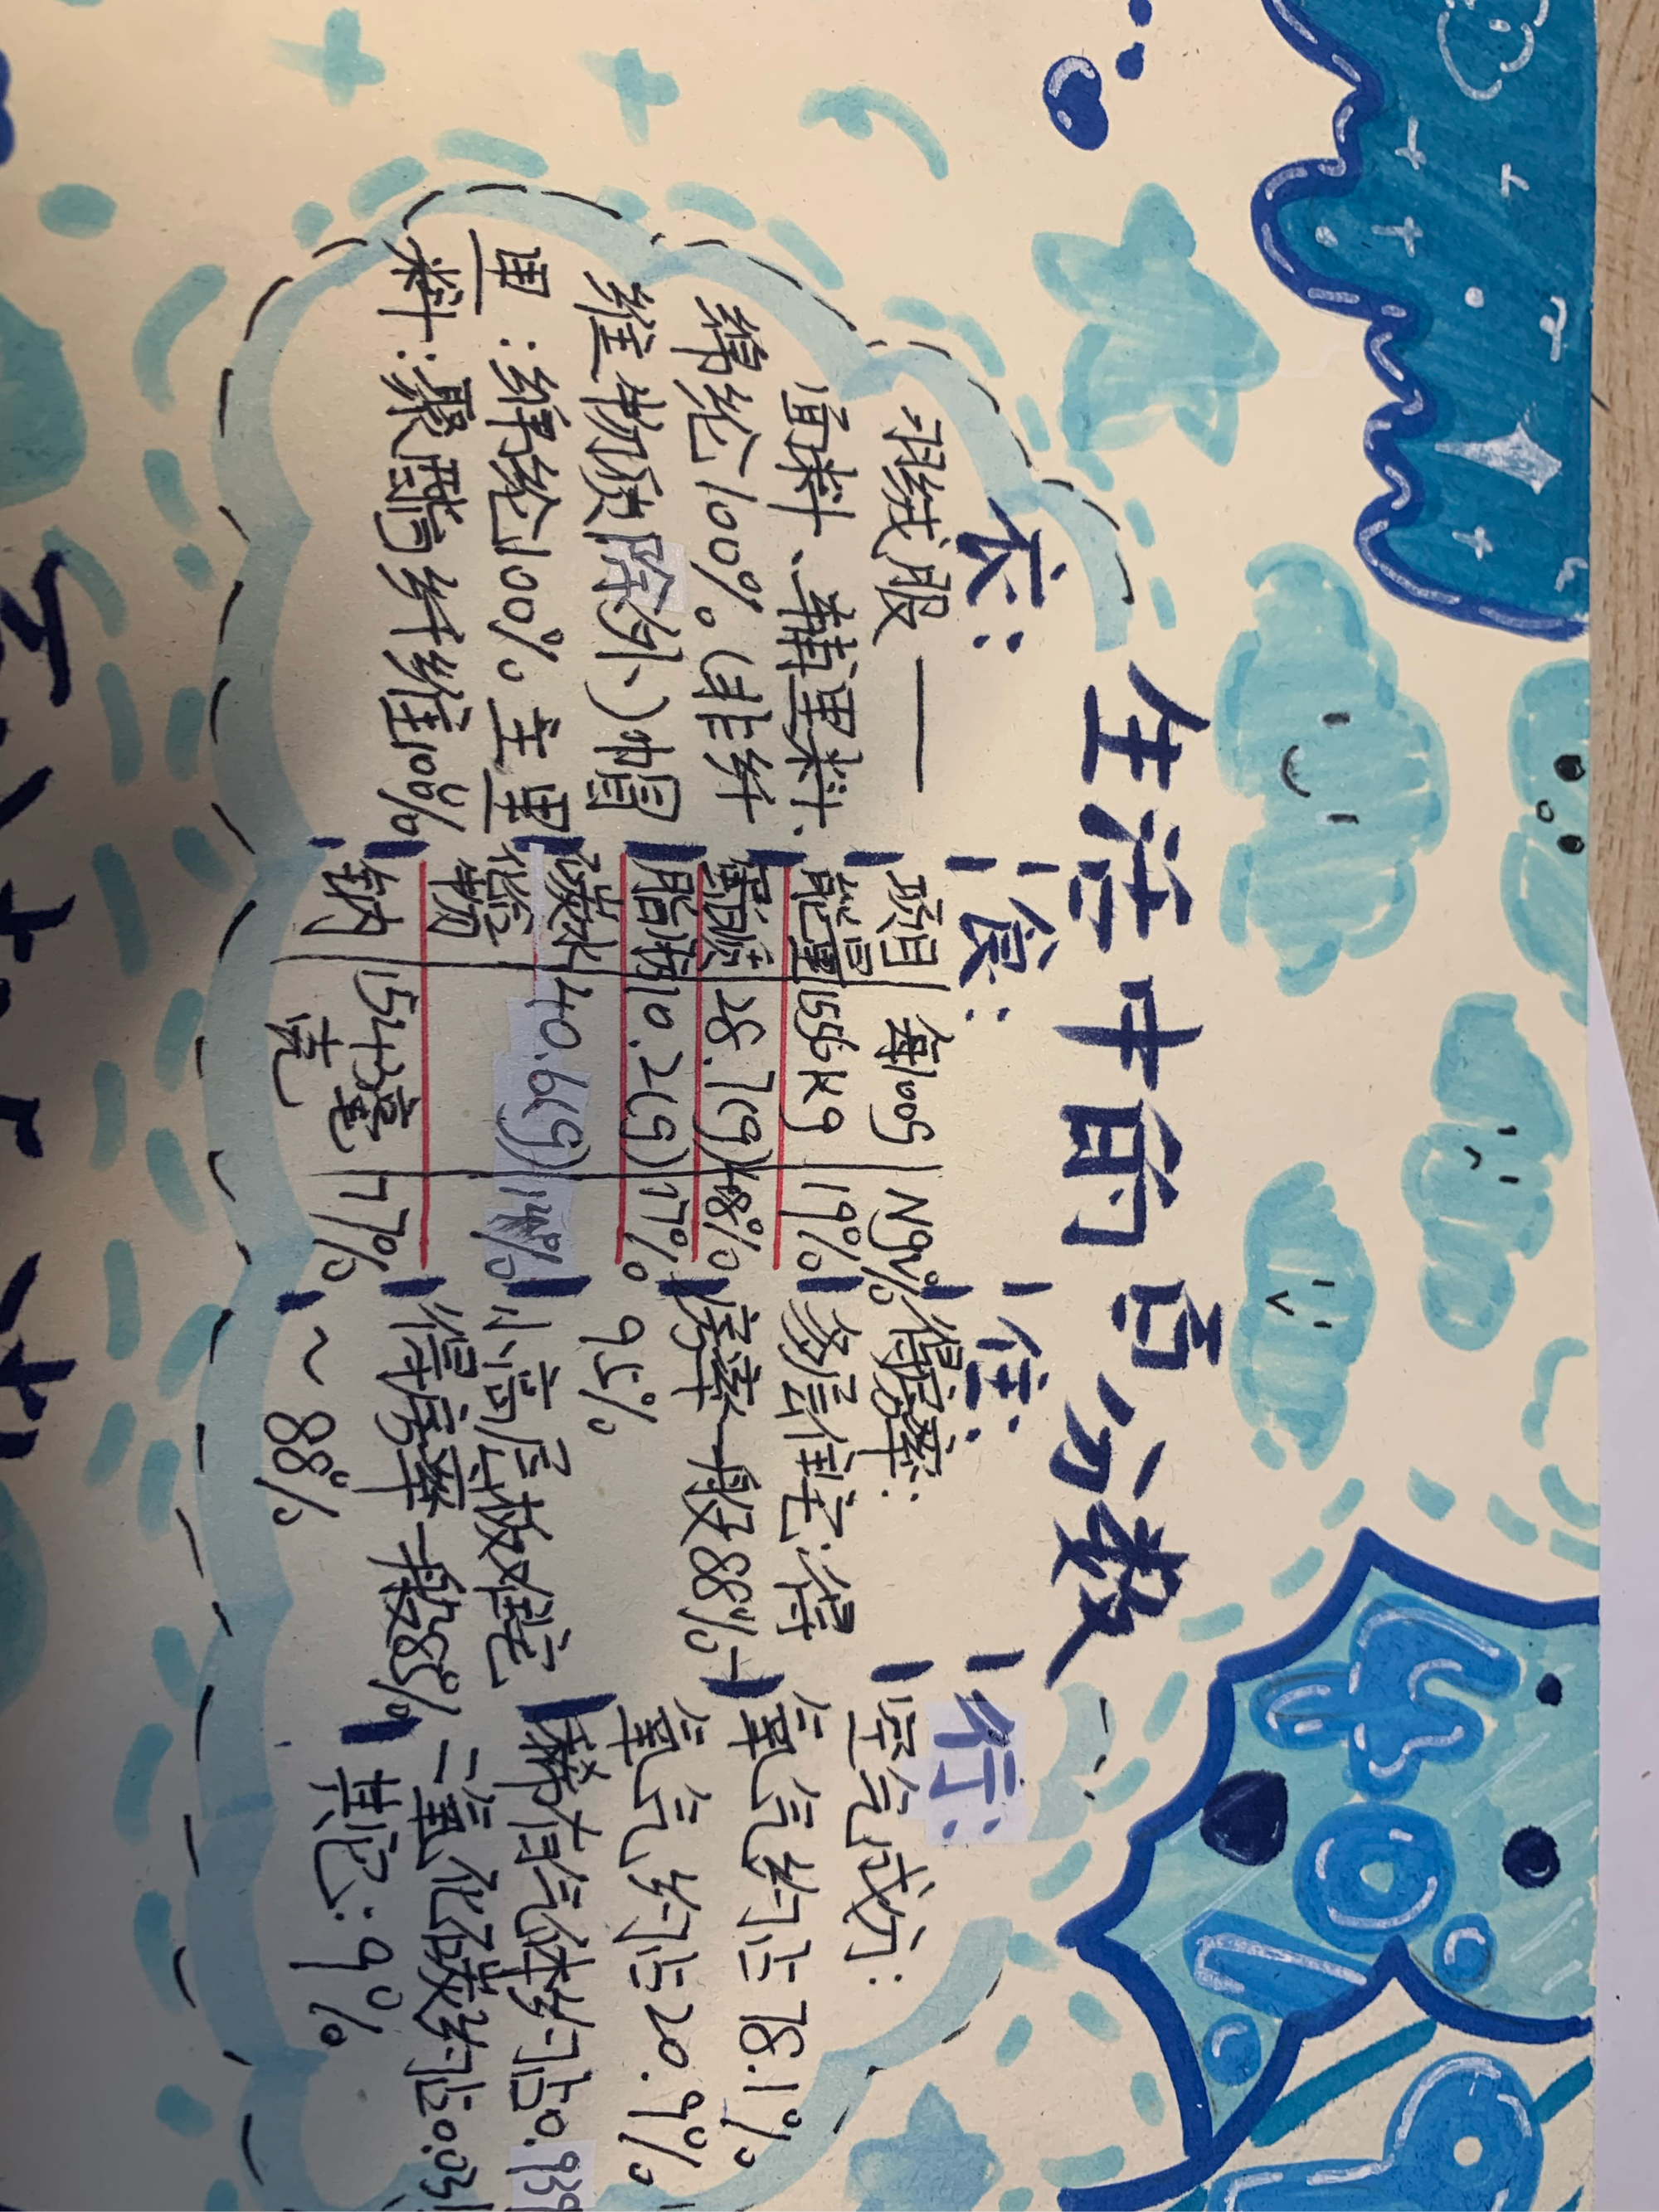 生活中的百分数
衣:
羽绒服——
面料、辅里料、
绵纶100%。(非纤
维物质除外)帽
里:绵纶100%。主里
料:聚酯纤维100%
食:
项目 每100g NRV%
能量 1556kg 19%
蛋白质 28.7(g) 48%
脂肪 10.2(g) 17%
碳水 40.6(g) 14%
化合物
钠 1543毫 77%
克
住:
得房率:
多层住宅:得
房率一般88%~
95%
小高层板住宅
得房率一般85%
~88%
行:
空气成分:
氮气约占78.1%
氧气约占20.9%
稀有气体约占0.939
二氧化碳约占0.031
其它:9%
40%